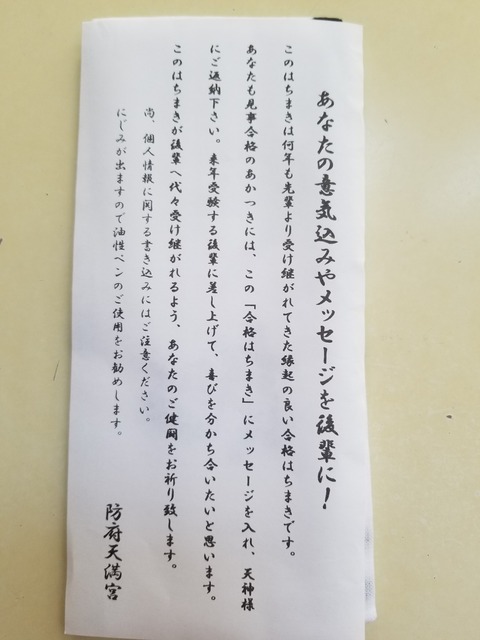 あなたの意気込みやメッセージを後輩に！
このはちまきは何年も先輩より受け継がれてきた縁起の良い合格はちまきです。
あなたも見事合格のあかつきには、この「合格はちまき」にメッセージを入れ、天神様
にご返納下さい。来年受験する後輩に差し上げて、喜びを分かち合いたいと思います。
このはちまきが後輩へ代々受け継がれるよう、あなたのご健闘をお祈り致します。
尚、個人情報に関する書き込みにはご注意ください。
にじみが出ますので油性ペンのご使用をお勧めします。
防府天満宮